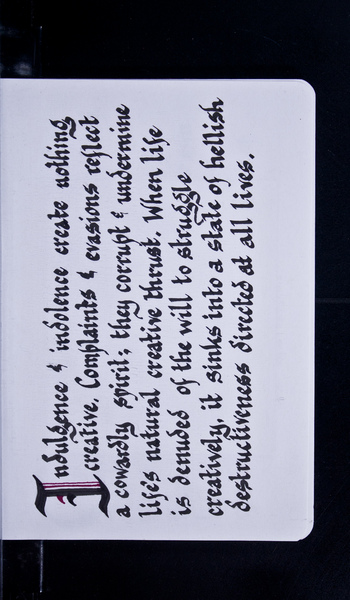 Indulgence & indolence create nothing
creative. Complaints & evasions reflect
a cowardly spirit; they corrupt & undermine
lifes natural creative thrust. When life
is denuded of the will to struggle
creatively, it sinks into a state of hellish
destructiveness directed at all lives.